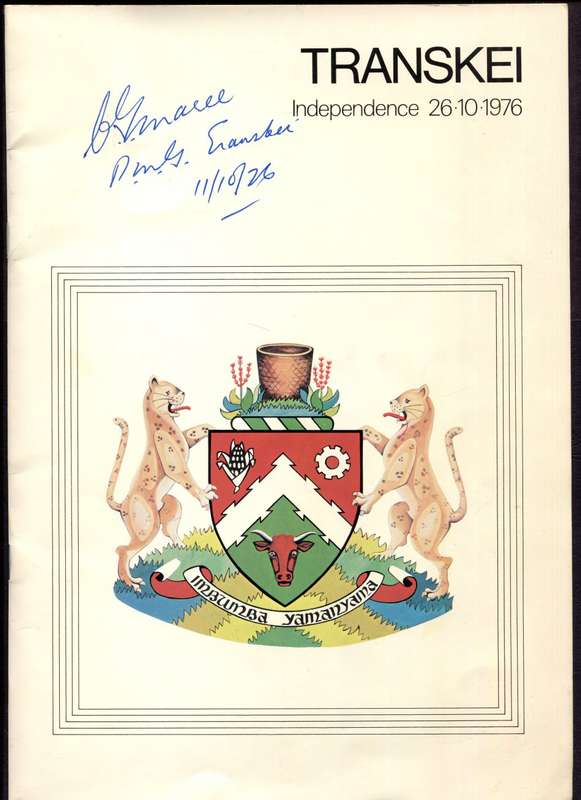 TRANSKEI
Independence 26·10·1976
P.M.G. Transkei
11/10/76
IMBUMBA YAMANYAMA